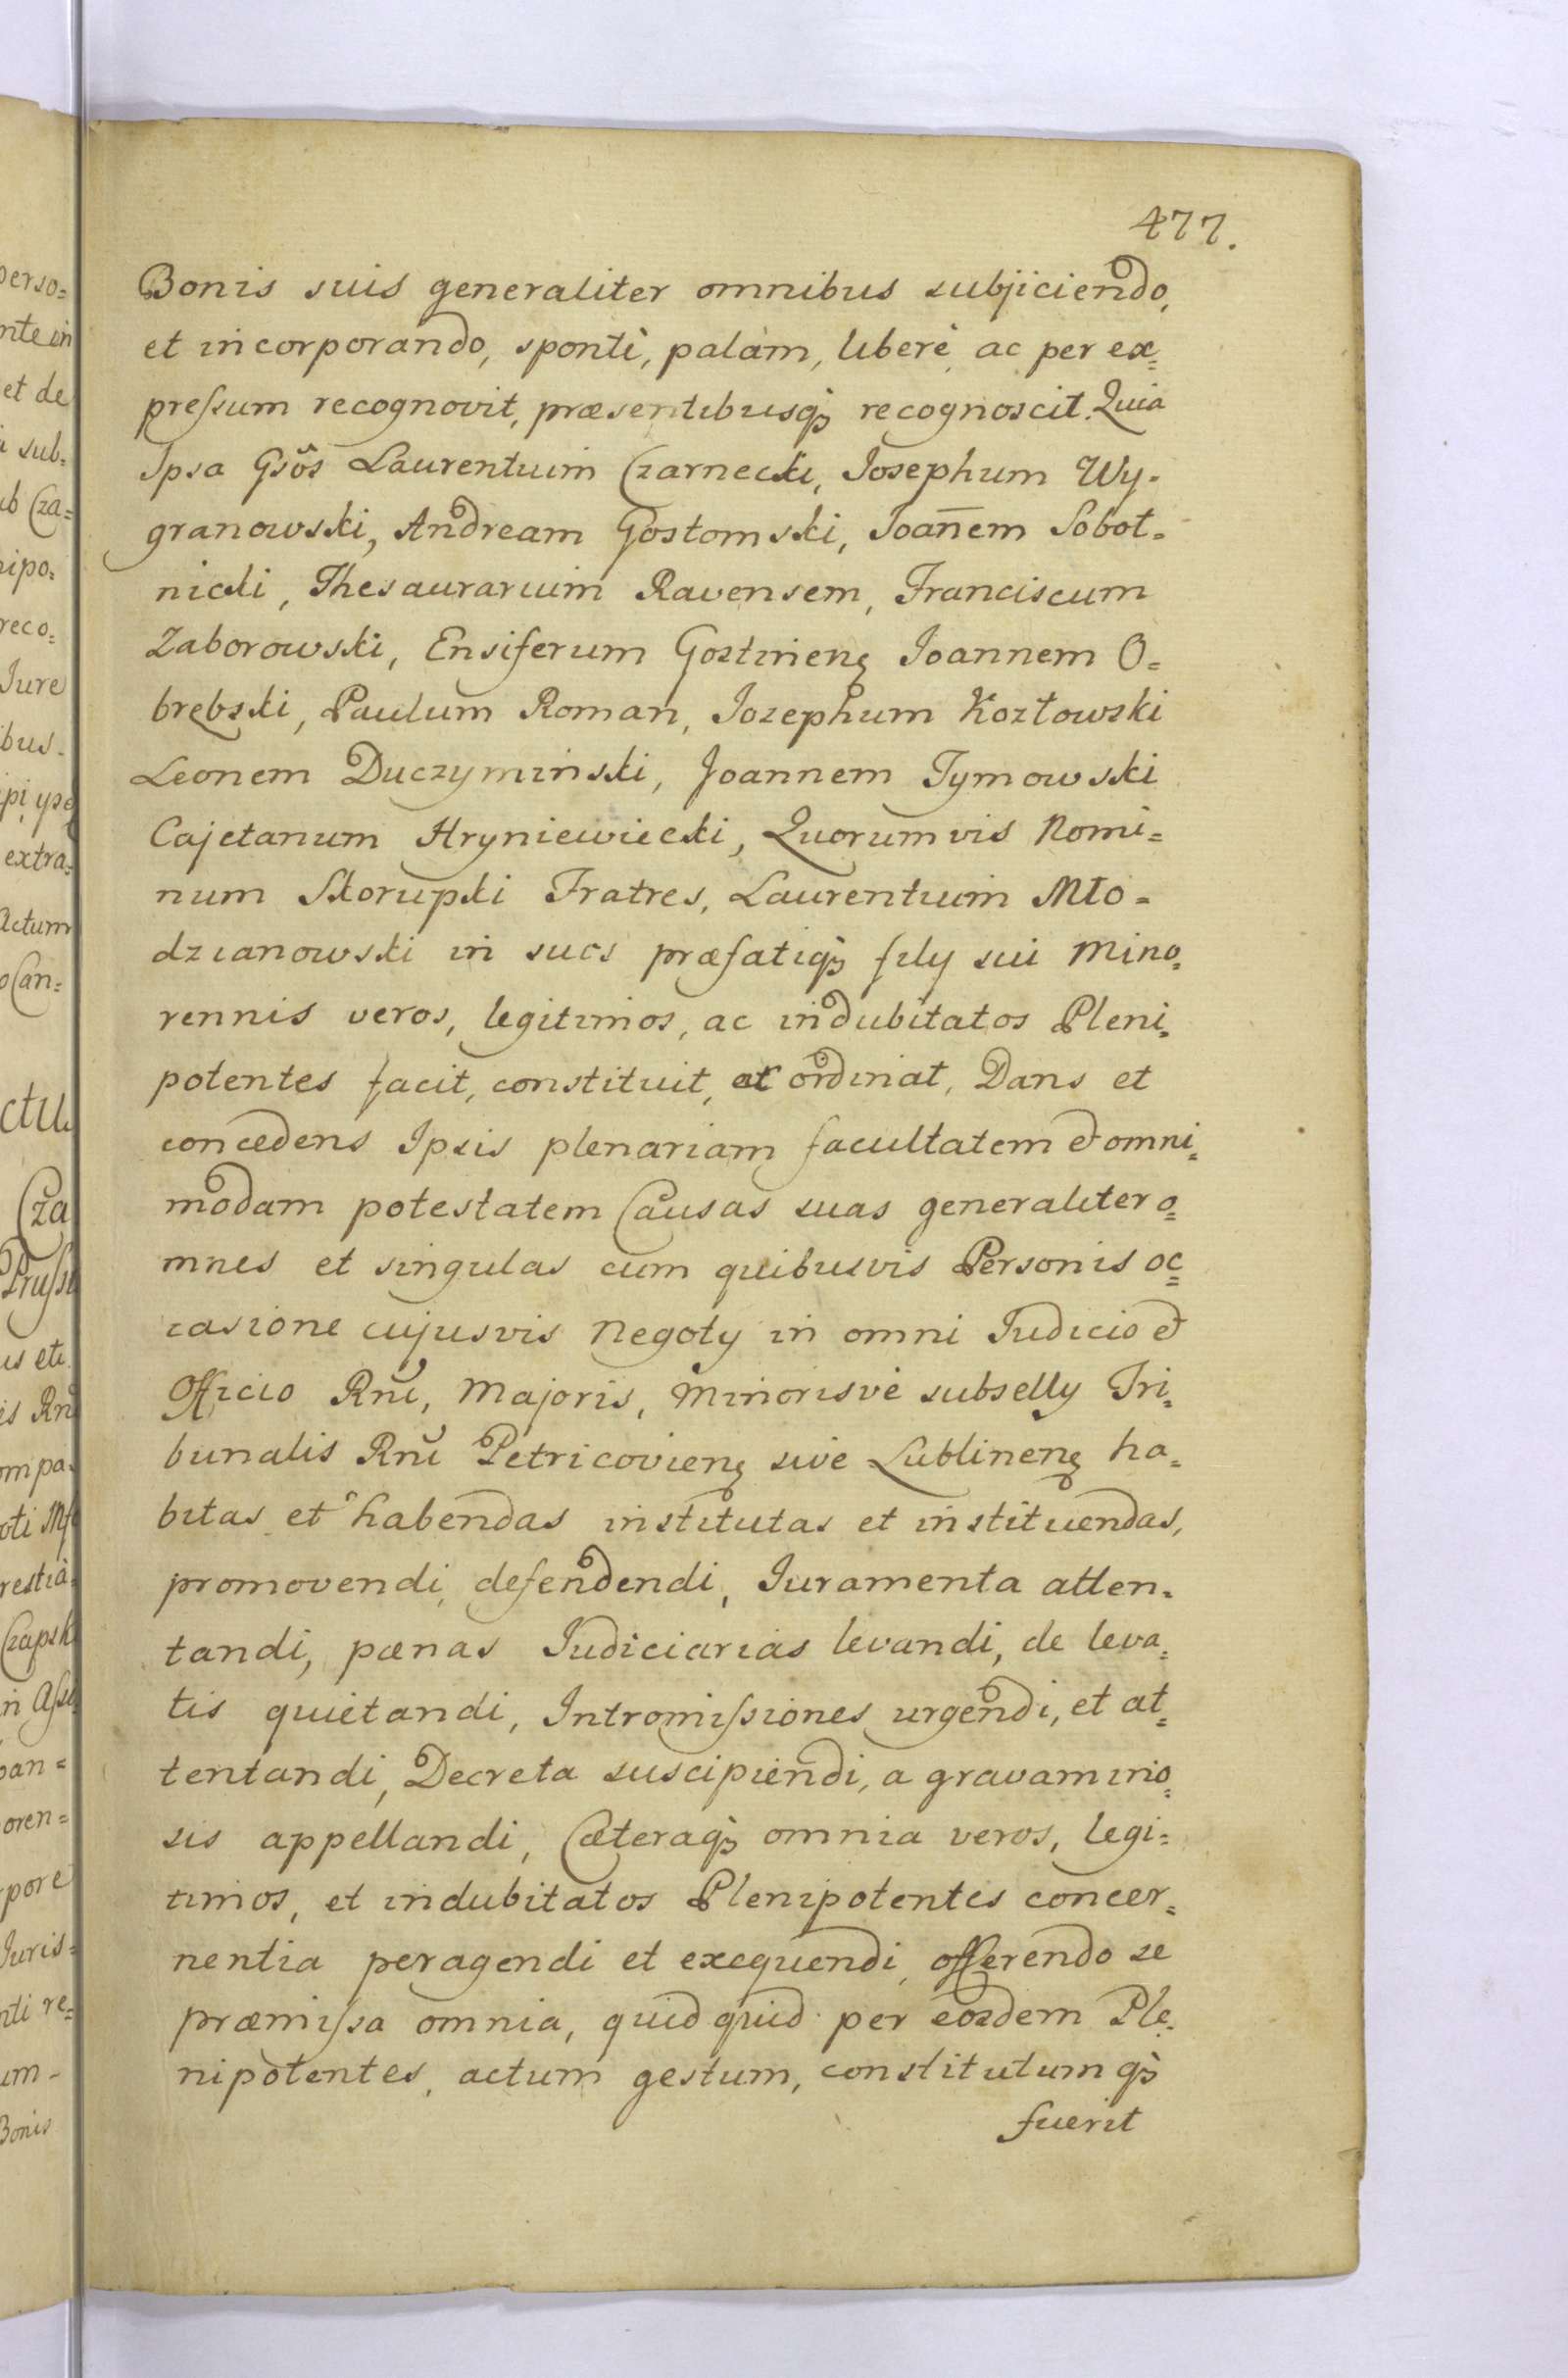 477.
Bonis suis generaliter omnibus subjiciendo,
et incorporando, spontè, palàm, liberè, ac per ex=
preſsum recognovit, præsentibusq̀ꝫ recognoscit. Quia
Ipsa Gsôs Laurentium Czarnecki, Iosephum Wy-
granowski, Andream Gostomski, Ioan̄em Sobot=
nicki, Thesaurarium Ravensem, Franciscum
Zaborowski, Ensiferum Gostinenꝫ Ioannem O=
brębski, Paulum Roman, Iozephum Kozłowski
Leonem Duczyminski, Joannem Tymowski
Cajetanum Hryniewiecki, Quorumvis Nomi=
num Skorupski Fratres, Laurentium Mło=
dzianowski in suos præfatiq̀ꝫ filÿ sui Mino=
rennis veros, legitimos, ac indubitatos Pleni=
potentes facit, constituit, et ordinat, Dans et
concedens Ipsis plenariam facultatem et omni=
modam potestatem Causas suas generaliter o=
mnes et singulas cum quibusvis Personis oc=
casione cujusvis Negoty in omni Iudicio et
Officio Rnĩ, Majoris, Minorisvè subselly Tri=
bunalis Rnĩ Petricovienꝫ sive Lublinenꝫ ha=
bitas et habendas institutas et instituendas,
promovendi, defendendi, Iuramenta atten=
tandi, pœnas Iudiciarias levandi, de leva=
tis quietandi, Intromiſsiones urgendi, et at=
tentandi, Decreta suscipiendi, a gravamino=
sis appellandi, Cæteraq̀ꝫ omnia veros, legi=
timos, et indubitatos Plenipotentes concer=
nentia peragendi et exequendi, offerendo se
præmiſsa omnia, quidquid per eosdem Ple=
nipotentes, actum gestum, constitutumq̀ꝫ
fuerit